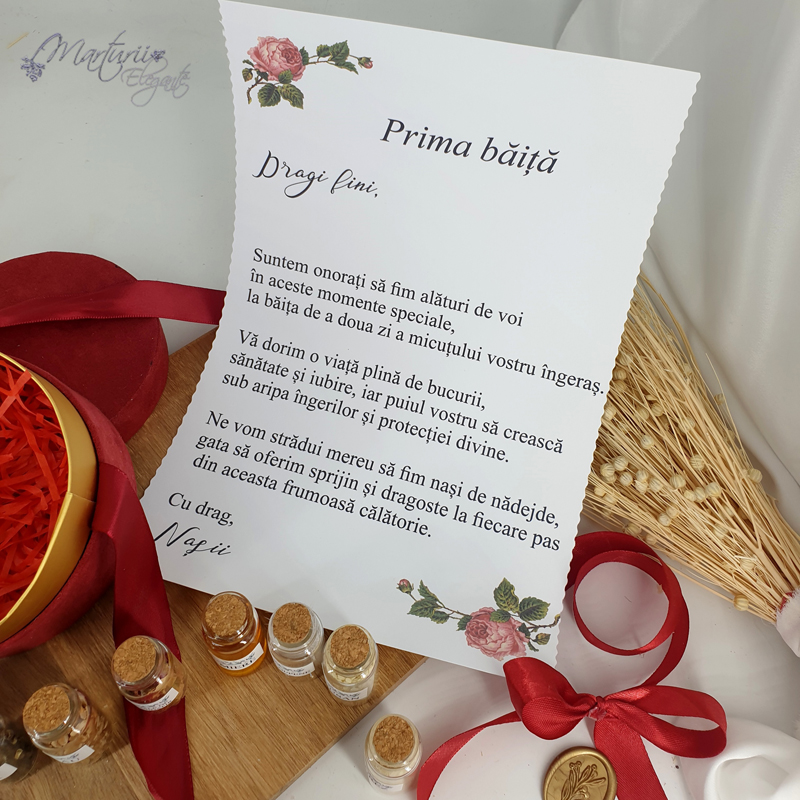 Marturii
Elegante
Prima băiță
Dragi fini,
Suntem onorați să fim alături de voi
în aceste momente speciale,
la băița de a doua zi a micuțului vostru îngeraș.
Vă dorim o viață plină de bucurii,
sănătate și iubire, iar puiul vostru să crească
sub aripa îngerilor și protecției divine.
Ne vom strădui mereu să fim nași de nădejde,
gata să oferim sprijin și dragoste la fiecare pas
din aceasta frumoasă călătorie.
Cu drag,
Nașii